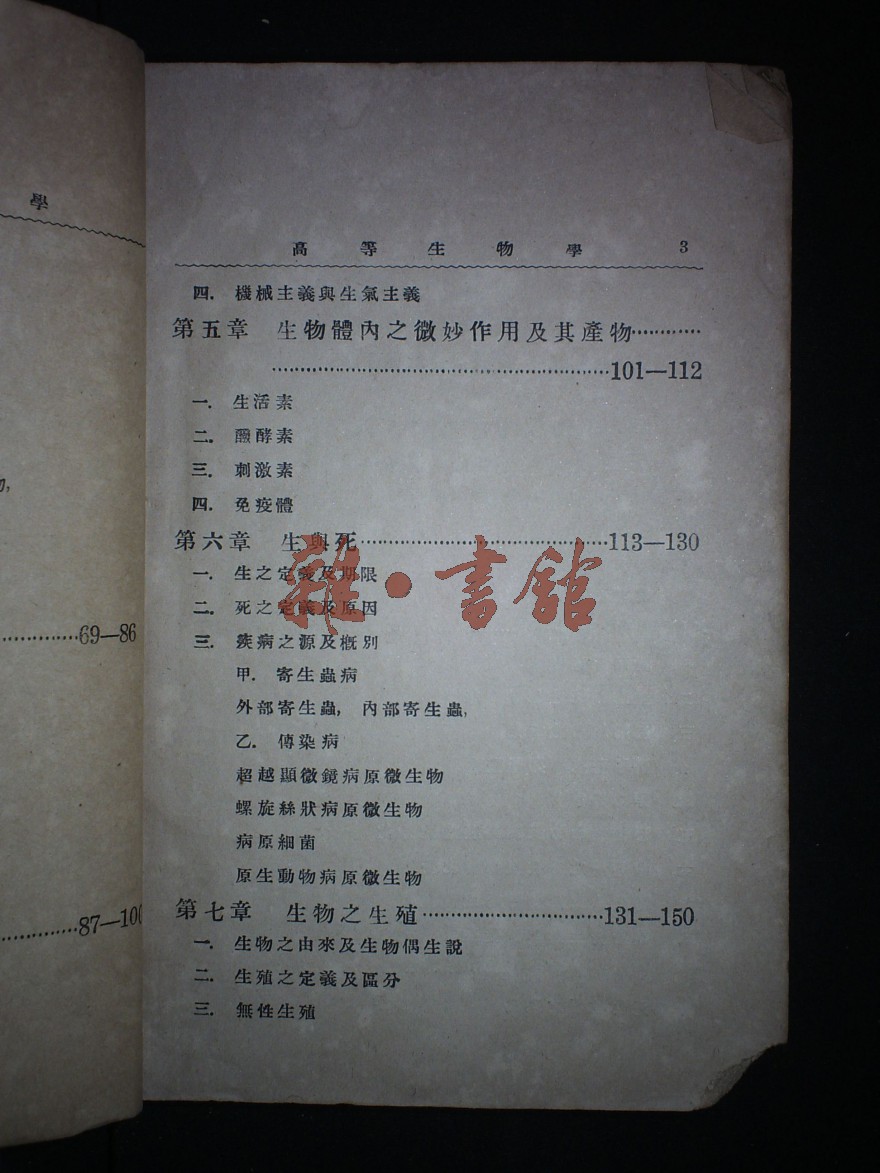 學
69—86
87—100
高等生物學 3
四. 機械主義與生氣主義
第五章 生物體內之微妙作用及其產物…………
……………………………………101—112
一. 生活素
二. 醱酵素
三. 刺激素
四. 免疫體
第六章 生與死……………………………113—130
一. 生之定義及期限
二. 死之定義及原因
三. 疾病之源及概別
甲. 寄生蟲病
外部寄生蟲, 內部寄生蟲,
乙. 傳染病
超越顯微鏡病原微生物
螺旋絲狀病原微生物
病原細菌
原生動物病原微生物
第七章 生物之生殖……………………131—150
一. 生物之由來及生物偶生說
二. 生殖之定義及區分
三. 無性生殖
雜·書館